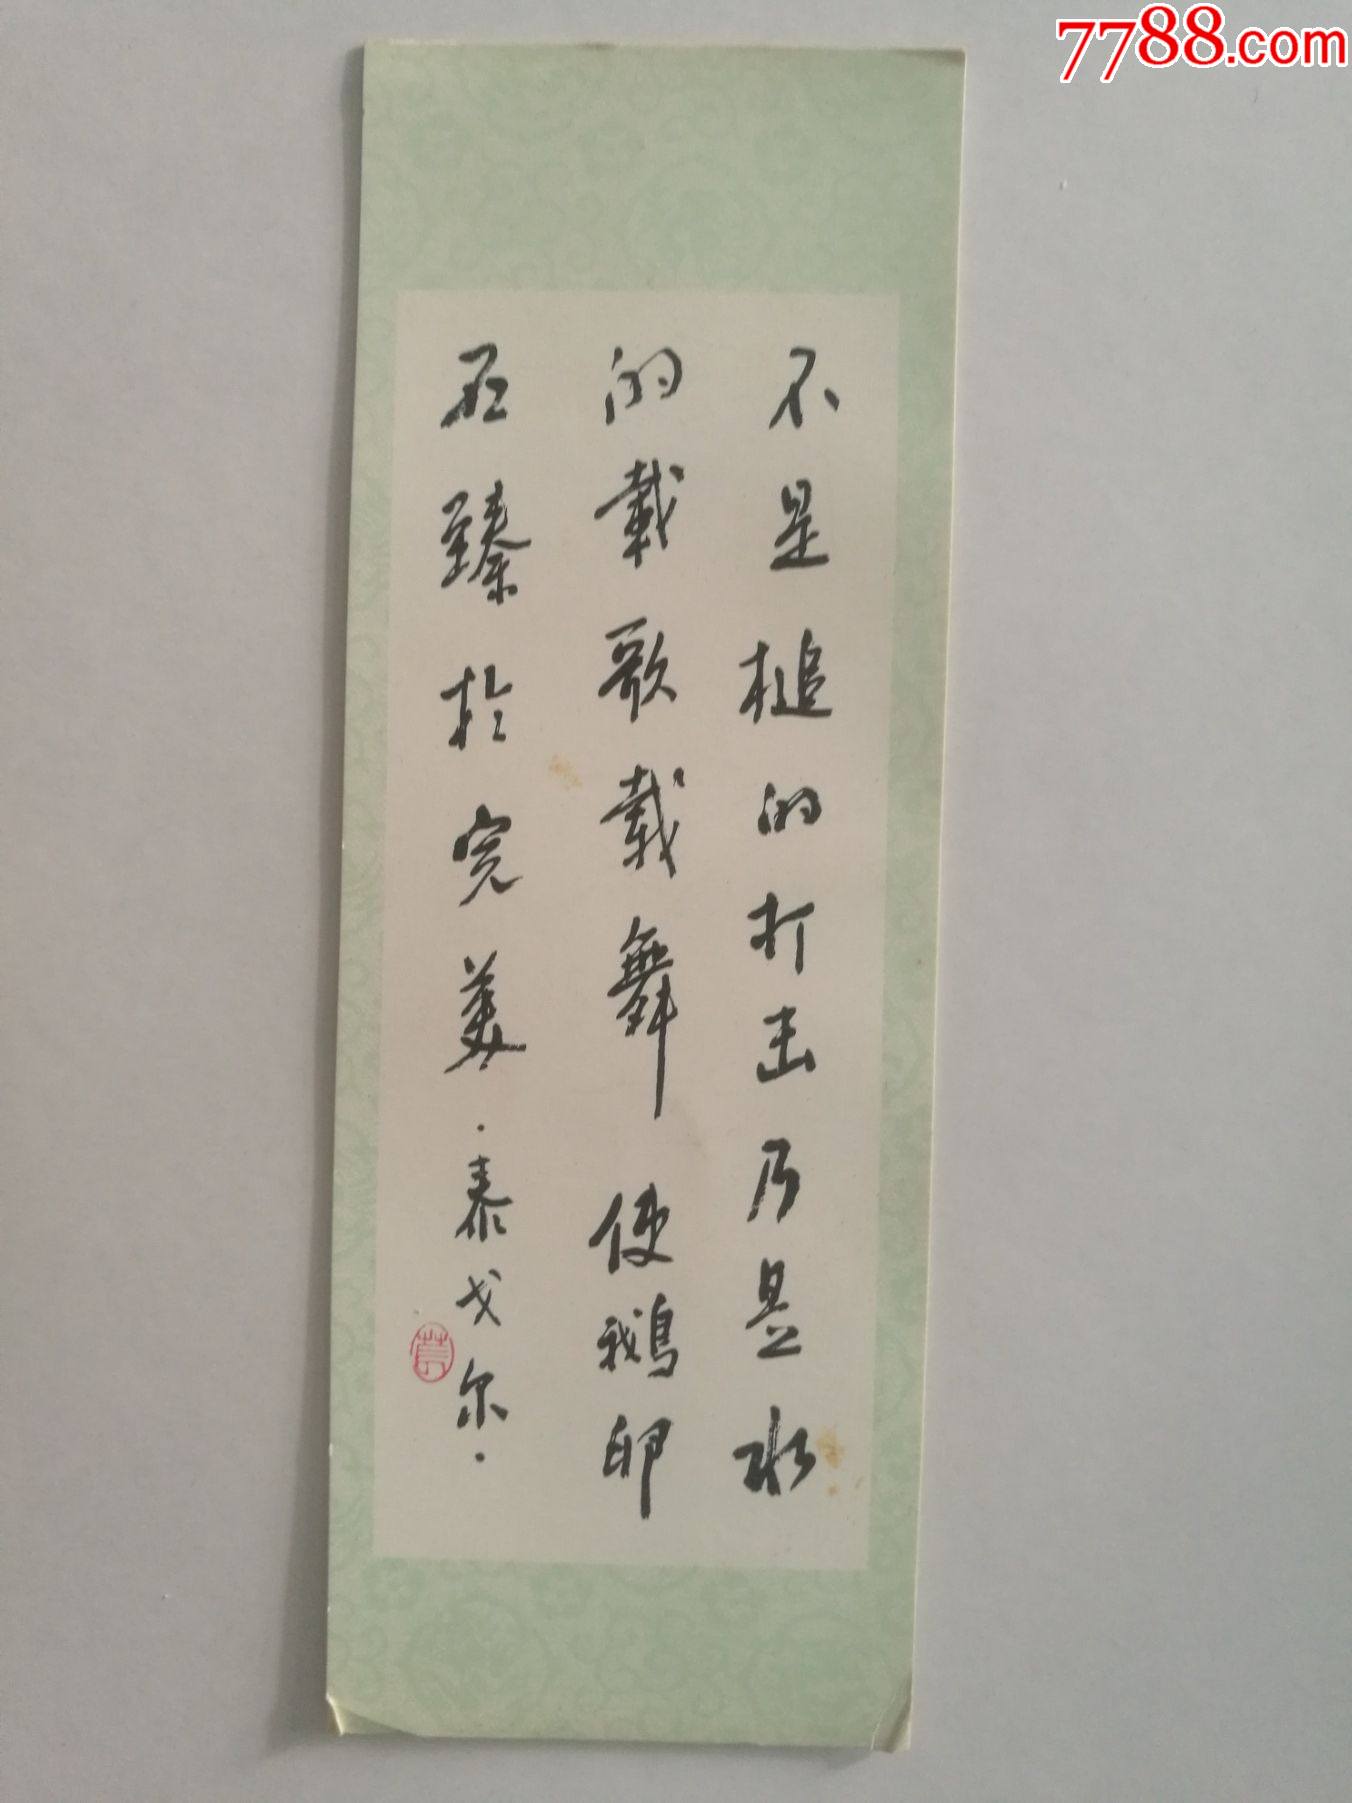 不是槌的打击乃是水
的載歌载舞使鵝卵
石臻於完美·泰戈尔·
7788.com